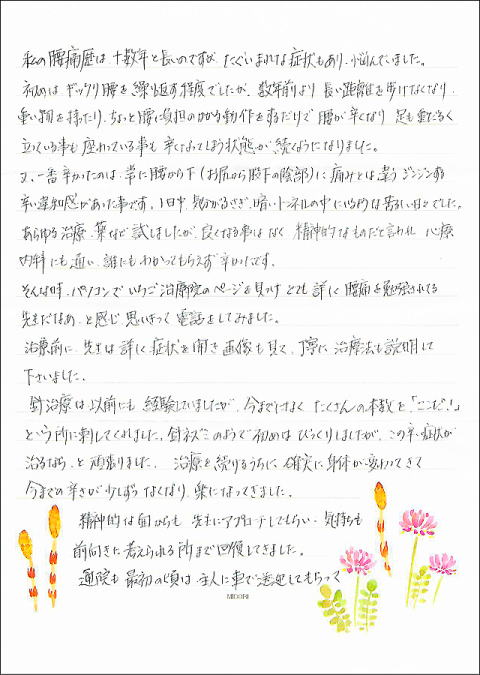 私の腰痛歴は、十数年と長いのですが、たぐいまれな症状もあり、悩んでいました。
初めは、ギックリ腰を繰り返す程度でしたが、数年前より長い距離を歩けなくなり、
重い物を持ったり、ちょっと腰に負担のかかる動作をするだけで腰が辛くなり足も重だるく
立っている事も座わっている事も辛くなってしまう状態が続くようになりました。
又、一番辛かったのは、常に腰から下(お尻から股下の陰部)に痛みとは違うジンジンする
辛い違和感があった事です。1日中、気分がふさぎ、暗いトンネルの中にいる様な苦しい日々でした。
あらゆる治療、薬など試しましたが、良くなる事はなく、精神的なものだと言われ、心療
内科にも通い、誰にもわかってもらえず辛かったです。
そんな時、パソコンでいちご治療院のページを見つけ、とても詳しく腰痛を勉強されてる
先生だなあ、と感じ、思いきって電話をしてみました。
治療前に、先生は詳しく症状を聞き、画像も見て、丁寧に治療法も説明して
下さいました。
針治療は以前にも経験していましたが、今までになく、たくさんの本数を、「ここだ!」
という所に刺してくれました。針ネズミのようで初めはびっくりしましたが、この辛い症状が
治るなら、と頑張りました。治療を続けるうちに、確実に身体が変わってきて
今までの辛さが少しずつなくなり、楽になってきました。
精神的な面からも、先生にアプローチしてもらい、気持ちも
前向きに考えられる所まで回復してきました。
通院も最初の頃は、主人に車で送迎してもらって
MIDORI